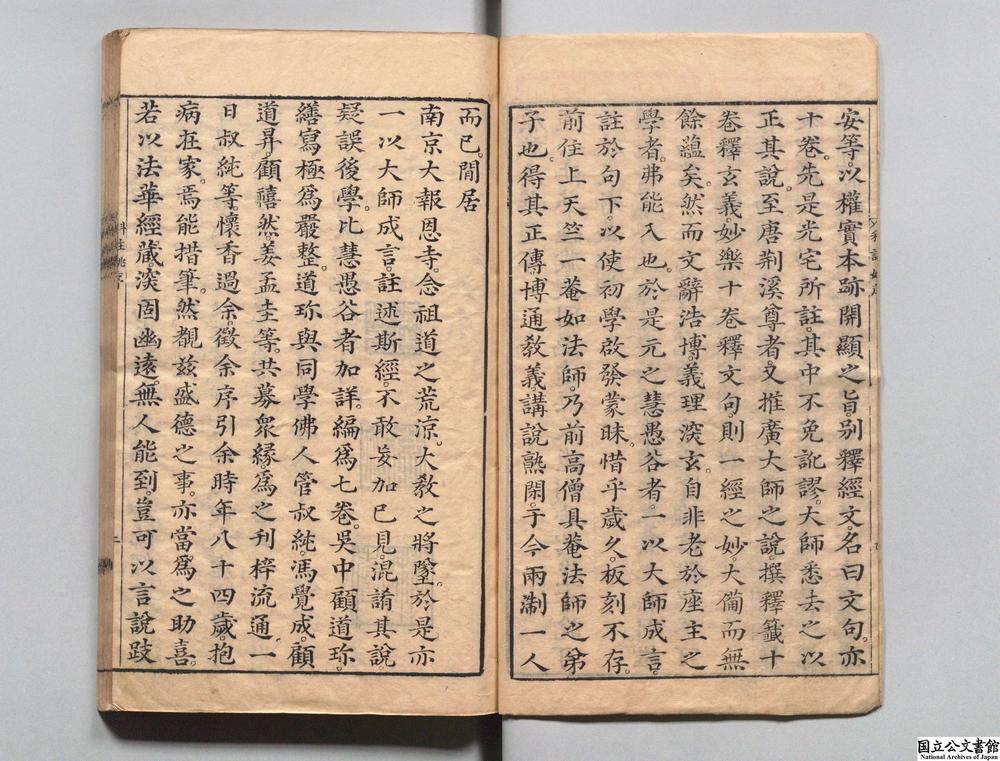 安等。以權實本跡開顯之旨。別釋經文。名曰文句。亦
十卷。先是光宅所註。其中不免訛謬。大師悉去之以
正其說。至唐荆溪尊者。又推廣大師之說。撰釋籤十
卷釋玄義。妙樂十卷釋文句。則一經之妙。大備而無
餘蘊矣。然而文辭浩博。義理深玄。自非老於座主之
學者。弗能入也。於是元之慧愚谷者。一以大師成言。
註於句下。以使初學啟發蒙昧。惜乎歲久。板刻不存。
前住上天竺一菴如法師。乃前高僧具菴法師之第
子也。得其正傳博通教義。講說熟閑。于今兩淛一人
而已。間居
南京大報恩寺。念祖道之荒涼。大教之將墜。於是亦
一以大師成言。註述斯經。不敢妄加已見。混淆其說。
疑誤後學。比慧愚谷者加詳。編為七卷。吳中顧道珎。
繕寫極為嚴整。道珎與同學佛人管叔純。馮覺成。顧
道昇。顧禧然。姜孟圭等。共募衆縁。為之刊梓流通。一
日叔純等。懷香過余。徵余序引余時年八十四歲。抱
病在家。焉能措筆。然覩茲盛德之事。亦當為之助喜。
若以法華經藏。深固幽遠。無人能到。豈可以言說跂
国立公文書館
National Archives of Japan